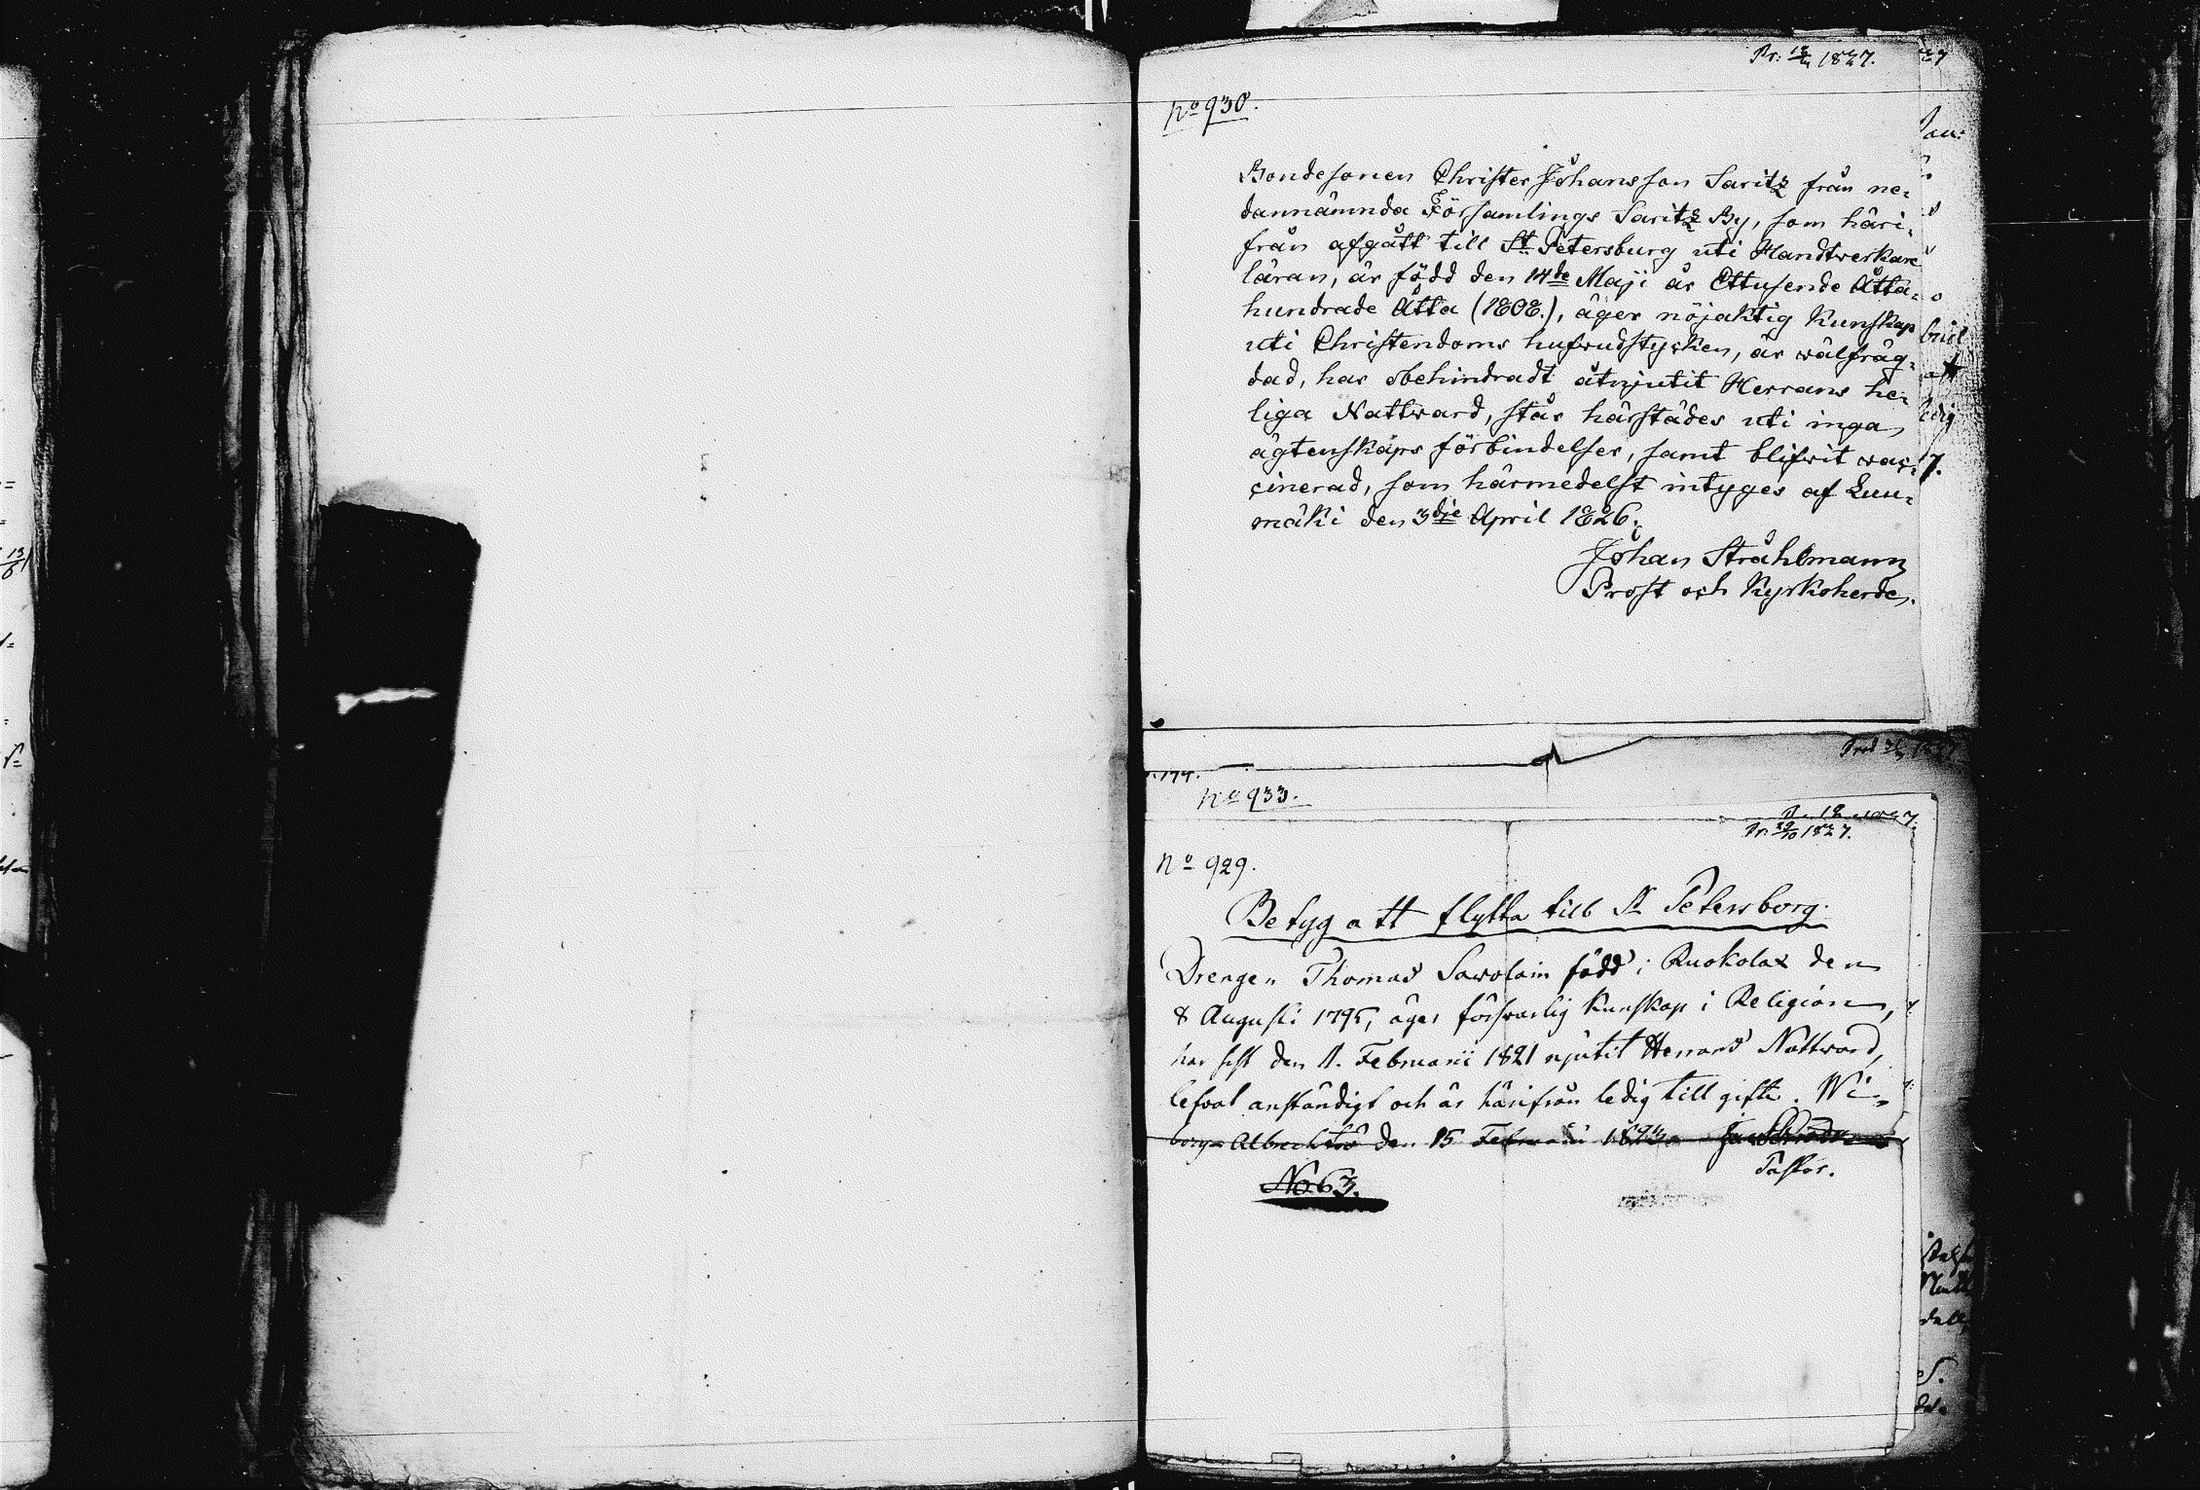 Pr: 18/4 1827.
No 930.
Bondesonen Christer Johansson Saritz från ne-
dannämnda Församlings Saritz By, som häri-
från afgått till St Petersburg uti Handtverkare
läran, är född den 14de Maji år Ettusende Åtta-
hundrade Åtta (1808.), äger nöjaktig Kunskap
uti Christendoms hufvudstycken, är wälfräg-
dad, har obehindradt åtnjutit Herrans he-
liga Nattward, står härstädes uti inga
ägtenskaps förbindelser, samt blifvit vac-
cinerad, som härmedelst intyges af Luu-
mäki den 3dje April 1826.
Johan Stråhlmann
Prost och Kyrkoherde.
No 933.
Pr: 1827.
No 929.
Betyg att flytta till St Petersborg.
Drengen Thomas Sawolain född i Ruokolax den
8 Augusti 1795, äger försvarlig Kunskap i Religion,
har sist den 11. Februarii 1821 njutit Herrans Nattward,
lefvat anständigt och är härifrån ledig till gifte. Wi-
borg Albrechtsö den 15 Februarii
Pastor.
No 63.